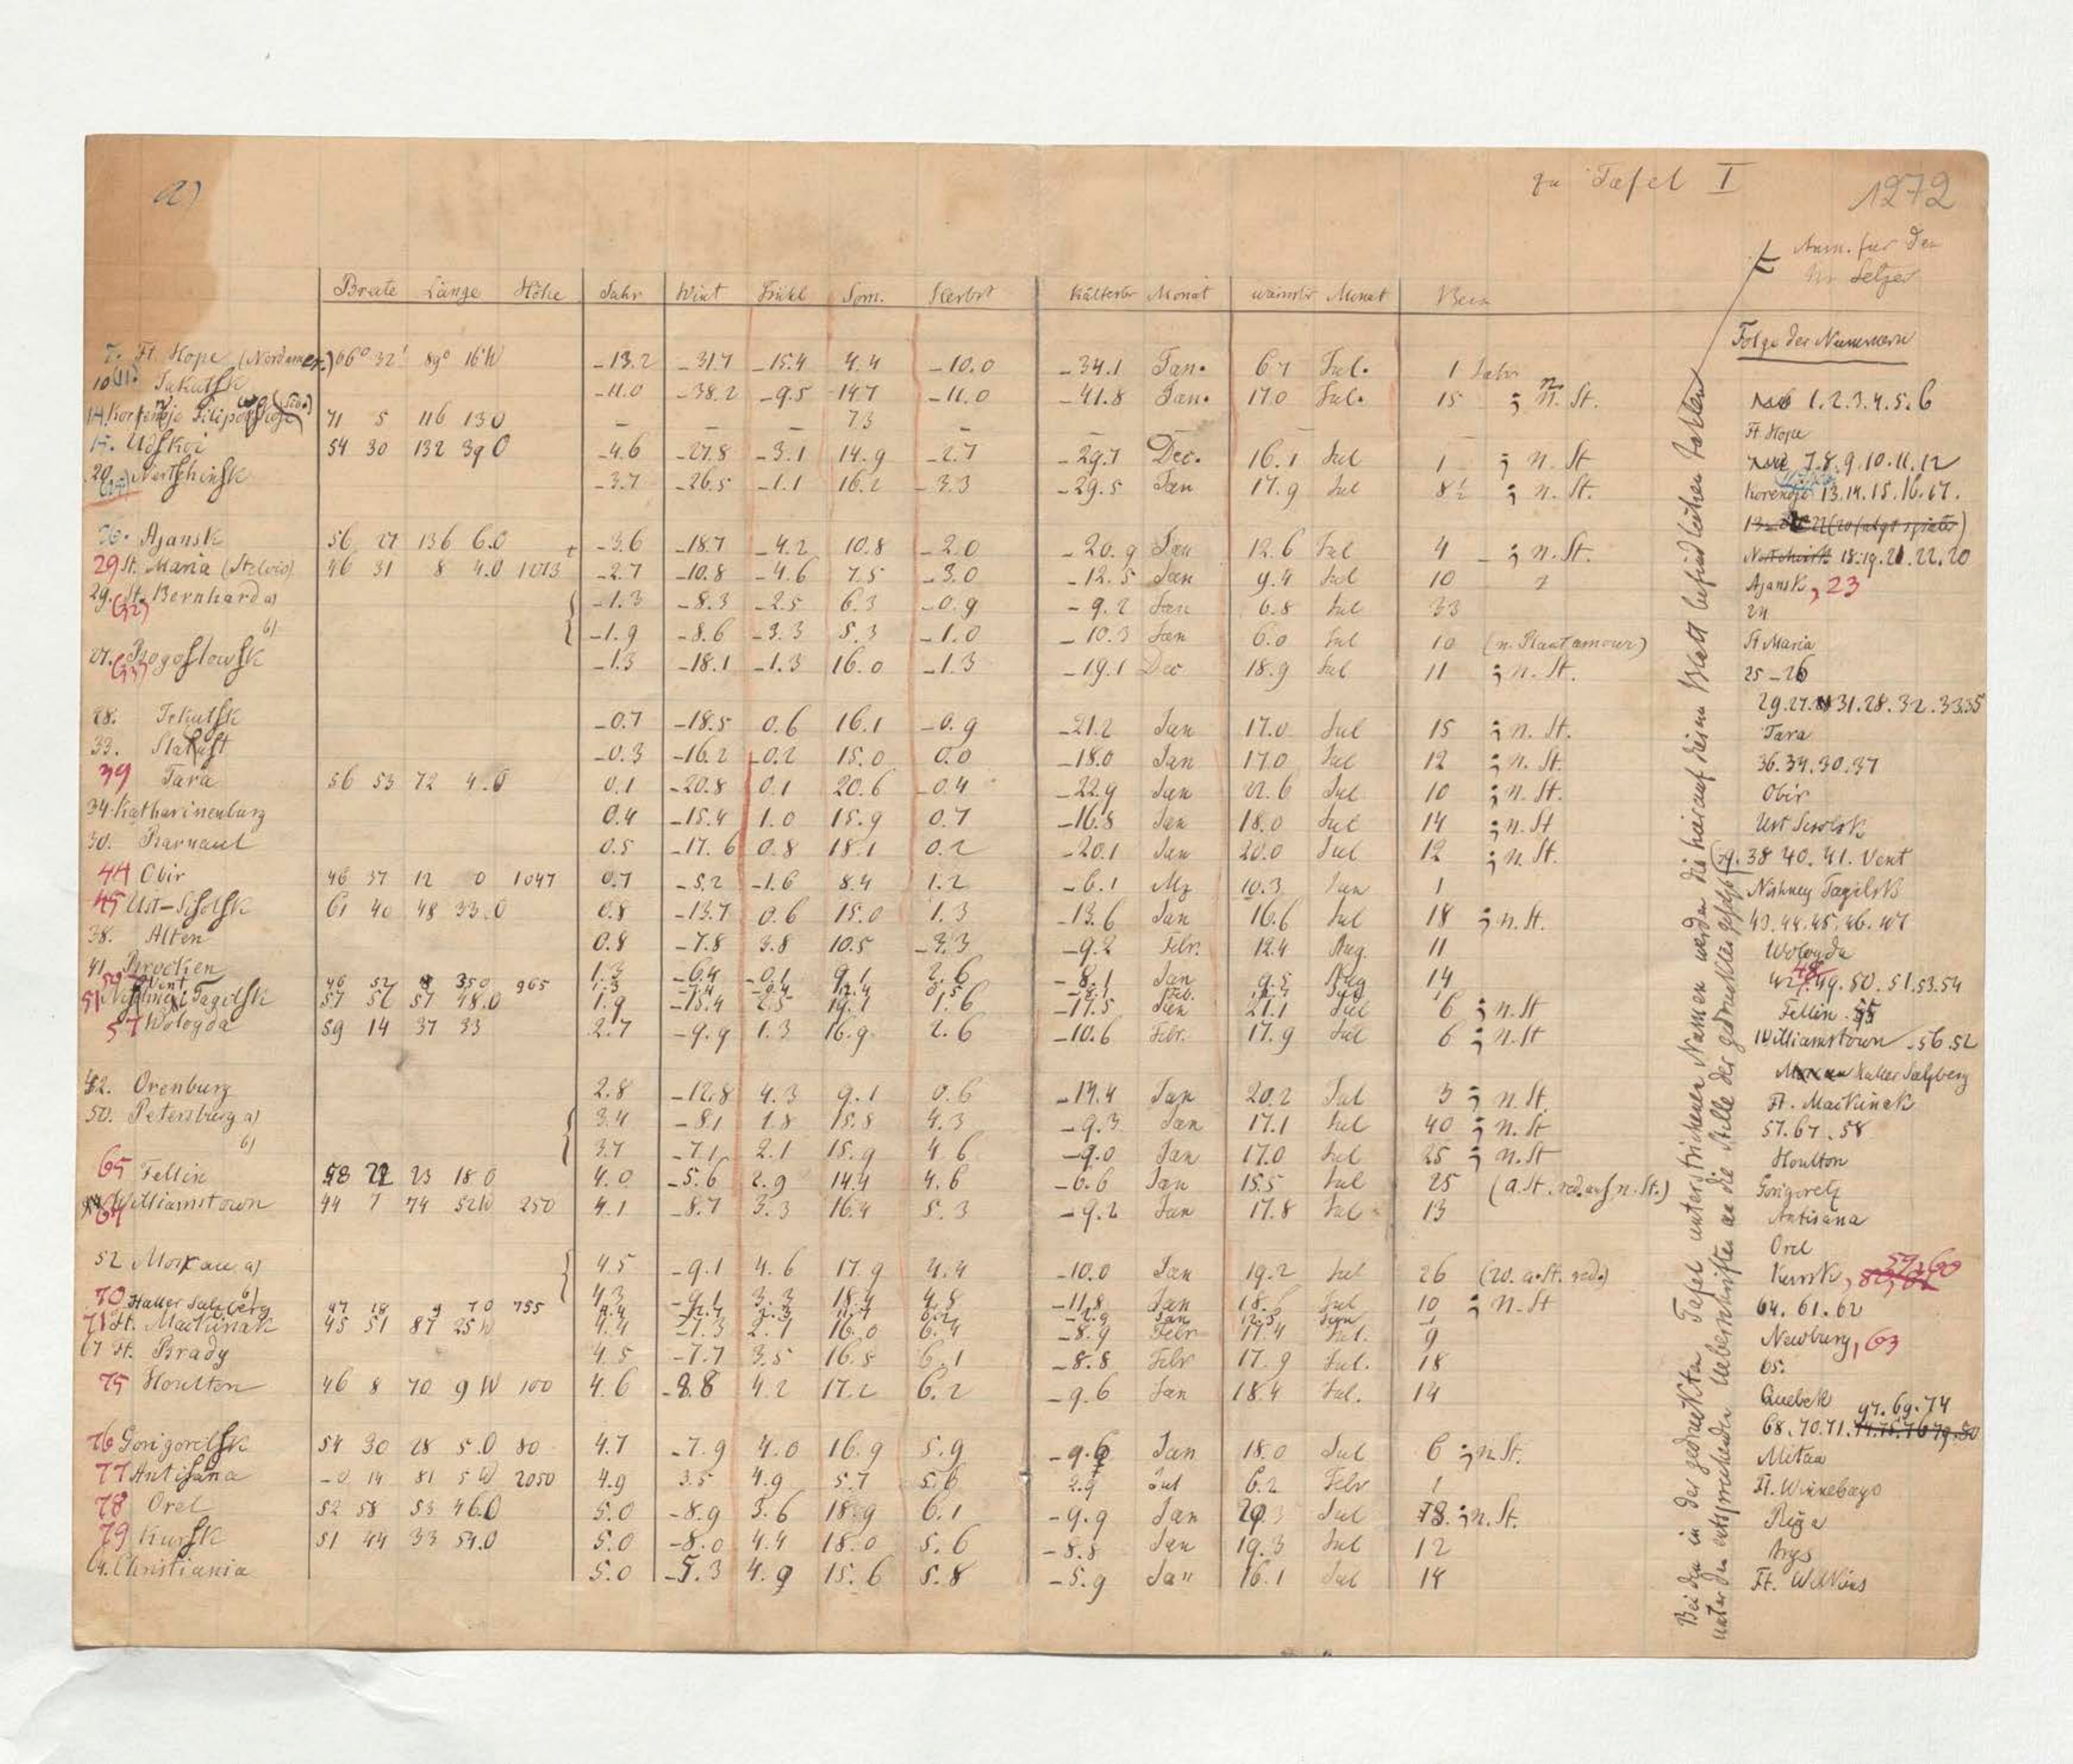 a)
zu Tafel I
1272
Anm. für den
Hr Setzer
Breite Länge Höhe Jahr Wint Frühl Som. Herbst kältester Monat wärmster Monat Bem
Folge der Nummern
7. Ft. Hope (Nordamer.) 66° 32' 89° 16'W -13.2 -31.7 -15.4 4.4 -10.0 -34.1 Jan. 6.7 Jul. 1 Jahr
10 (11). Jakutsk -11.0 -38.2 -9.5 14.7 -11.0 -41.8 Jan. 17.0 Jul. 15 ; n. St.
14. 71 5 116 13 0 - - - 7.3 - - -
17. Udskoi 54 30 132 39 0 -4.6 -27.8 -3.1 14.9 -2.7 -29.7 Dec. 16.1 Jul 1 ; n. St
20. Nertschinsk -3.7 -26.5 -1.1 16.2 -3.3 -29.5 Jan 17.9 Jul 8½ ; n. St.
26. Ajansk 56 27 136 6.0 -3.6 -18.7 -4.2 10.8 -2.0 -20.9 Jan 12.6 Jul 4 ; n. St.
29 St. Maria (Stelvio) 46 31 8 4.0 1013 -2.7 -10.8 -4.6 7.5 -3.0 -12.5 Jan 9.4 Jul 10
29. (32) St. Bernhard a) -1.3 -8.3 -2.5 6.3 -0.9 -9.2 Jan 6.8 Jul 33
b) -1.9 -8.6 -3.3 5.3 -1.0 -10.3 Jan 6.0 Jul 10 (n. Plantamour)
27. (33) Bogoslowsk -1.3 -18.1 -1.3 16.0 -1.3 -19.1 Dec 18.9 Jul 11 ; n. St.
28. Irkutsk -0.7 -18.5 0.6 16.1 -0.9 -21.2 Jan 17.0 Jul 15 ; n. St.
33. Slatust -0.3 -16.2 -0.2 15.0 0.0 -18.0 Jan 17.0 Jul 12 ; n. St.
39 Tara 56 53 72 4.0 0.1 -20.8 0.1 20.6 -0.4 -22.9 Jan 22.6 Jul 10 ; n. St.
34. Katharinenburg 0.4 -15.4 1.0 15.9 0.7 -16.8 Jan 18.0 Jul 14 ; n. St
30. Barnaul 0.5 -17.6 0.8 18.1 0.2 -20.1 Jan 20.0 Jul 12 ; n. St.
44 Obir 46 37 12 0 1047 0.7 -5.2 -1.6 8.4 1.2 -6.1 Mz 10.3 Jun 1
45 Ust-Sysolsk 61 40 48 33.0 0.8 -13.7 0.6 15.0 1.3 -13.6 Jan 16.6 Jul 18 ; n. St.
38. Alten 0.8 -7.8 3.8 10.5 -3.3 -9.2 Febr. 12.4 Aug. 11
41. Brocken 1.3 -6.4 -0.1 9.1 2.6 -8.1 Jan 9.5 Aug 14
Vent 46 52 8 350 965
51 Nischnei Tagilsk 57 56 57 48.0 1.9 -15.4 2.5 19.1 1.6 -17.5 Jan 21.1 Jul 6 ; n. St
57 Wologda 59 14 37 33 2.7 -9.9 1.3 16.9 2.6 -10.6 Febr. 17.9 Jul 6 ; n. St
42. Orenburg 2.8 -12.8 4.3 9.1 0.6 -14.4 Jan 20.2 Jul 3 ; n. St.
50. Petersburg a) 3.4 -8.1 1.8 15.8 4.3 -9.3 Jan 17.1 Jul 40 ; n. St
b) 3.7 -7.1 2.1 15.9 4.6 -9.0 Jan 17.0 Jul 25 ; n. St
65 Fellin 58 22 23 18 0 4.0 -5.6 2.9 14.4 4.6 -6.6 Jan 15.5 Jul 25 (a. St. red. auf n. St.)
64 Williamstown 44 7 74 52W 250 4.1 -8.7 3.3 16.4 5.3 -9.2 Jan 17.8 Jul 13
52 Moskau a) 4.5 -9.1 4.6 17.9 4.4 -10.0 Jan 19.2 Jul 26 (20. a. St. red.)
b) 4.3 -9.1 3.3 18.4 4.8 -11.8 Jan 18.6 Jul 10 ; n. St
70 Haller Salzberg 47 18 9 7 0 755
71 Ft. Mackinak 45 51 87 25W 4.4 -7.3 2.1 16.0 6.4 -8.9 Febr 17.4 Jul. 9
67 Ft. Brady 4.5 -7.7 3.5 16.5 6.1 -8.8 Febr 17.9 Jul. 18
75 Houlton 46 8 70 9 W 100 4.6 -8.8 4.2 17.2 6.2 -9.6 Jan 18.4 Jul. 14
76 Gorigoretsk 54 30 28 5.0 80 4.7 -7.9 4.0 16.9 5.9 -9.6 Jan 18.0 Jul 6 ; n. St.
77 Antisana -0 14 81 5 W 2050 4.9 3.5 4.9 5.7 5.6 2.9 Jul 6.2 Febr 1
78 Orel 52 58 53 46.0 5.0 -8.9 3.6 18.9 6.1 -9.9 Jan 20.3 Jul 18. ; n. St.
79 Kursk 51 44 33 54.0 5.0 -8.0 4.4 18.0 5.6 -8.8 Jan 19.3 Jul 12
64. Christiania 5.0 -5.3 4.9 15.6 5.8 -5.9 Jan 16.1 Jul 14
Bei den in der gedruckten Tafel unterstrichenen Namen werden die hierauf diesem Blatt befindlichen Zahlen
unter den entsprechenden Ueberschriften an die Stelle der gedruckten gesetzt
1.2.3.4.5.6
Ft Hope
7.8.9.10.11.12
13.14.15.16.17.
18.19.21.22.20
Ajansk, 23
24
St Maria
25-26
29.27.31.28.32.33.35
Tara
36.34.30.37
Obir
Ust Sysolsk
39.38 40.41. Vent
Nishney Tagilsk
43.44.45.46.47
Wologda
42.48.49.50.51.53.54
Fellin. 55
Williamstown - 56.52
Haller Salzberg
Ft. Mackinak
57.67.58
Houlton
Gorigoretz
Antisana
Orel
Kursk, 59,60
64.61.62
Newburg, 63
65.
Quebek 97.69.74
68.70.71.
Mitau
Ft. Winnebago
Riga
Arys
Ft. Wilkins